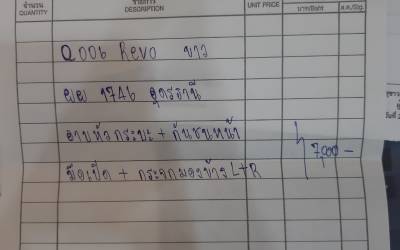 จำนวน รายการ บาท/Baht ส.ต./Stg.
QUANTITY DESCRIPTION UNIT PRICE
ประตู Revo ขาว
ผผ 1746 อุดรธานี
อาบหัวกระบะ + กันชนหน้า
มือเปิด + กระจกมองข้าง L+R 7,000 -